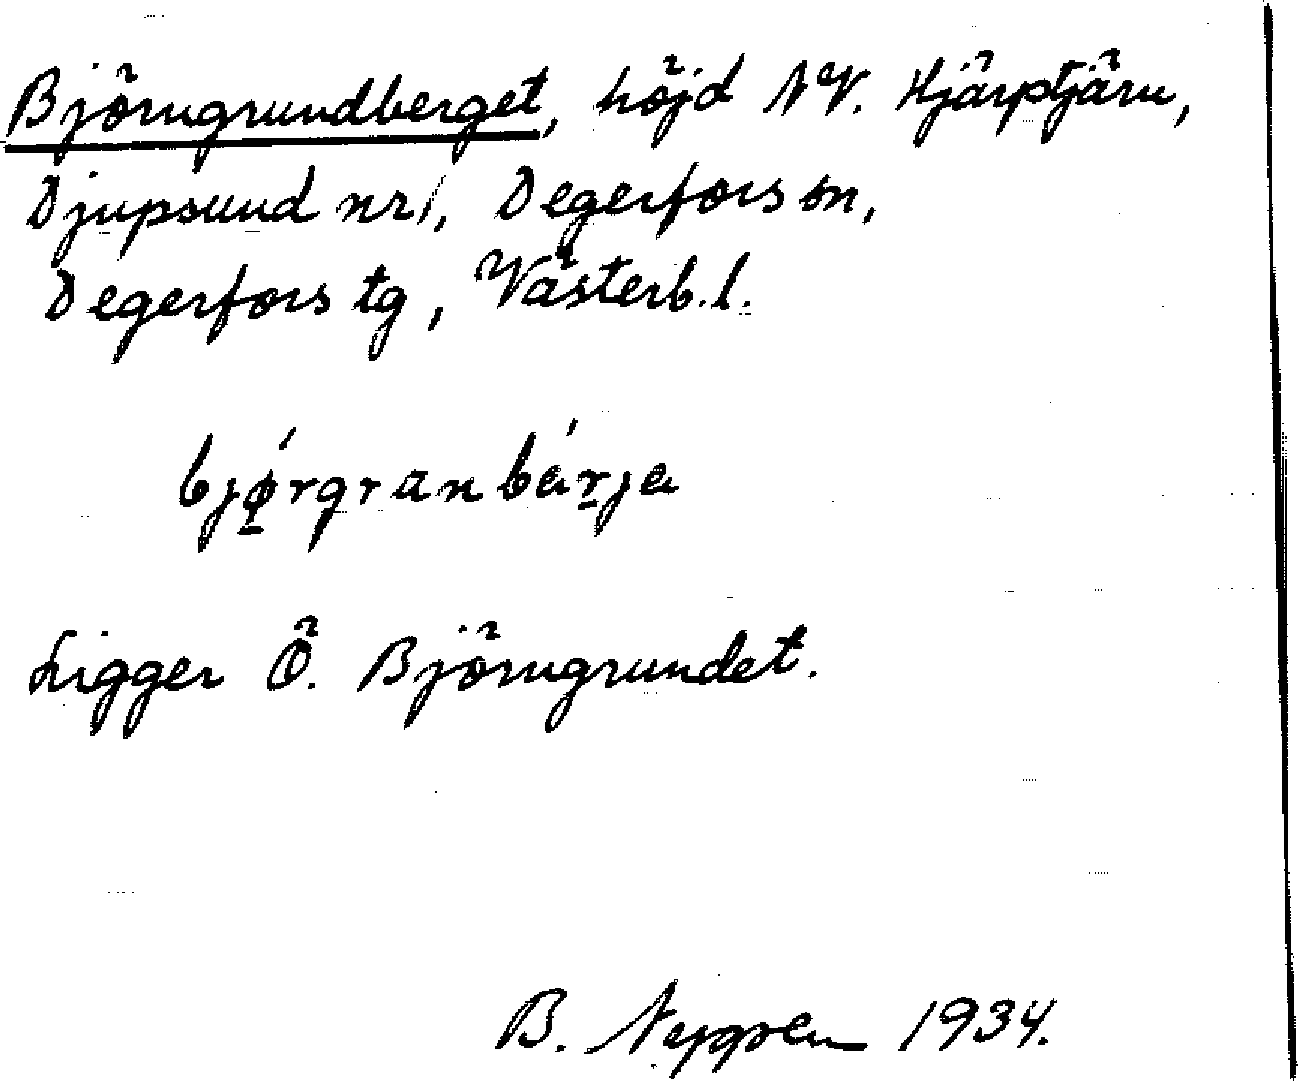 Björngrundberget, höjd NV. Hjärptjärn,
Djupsund nr 1, Degerfors sn,
Degerfors tg, Västerb. l.
bjǿrgranbárja
Ligger Ö. Björngrundet.
B. 1934.